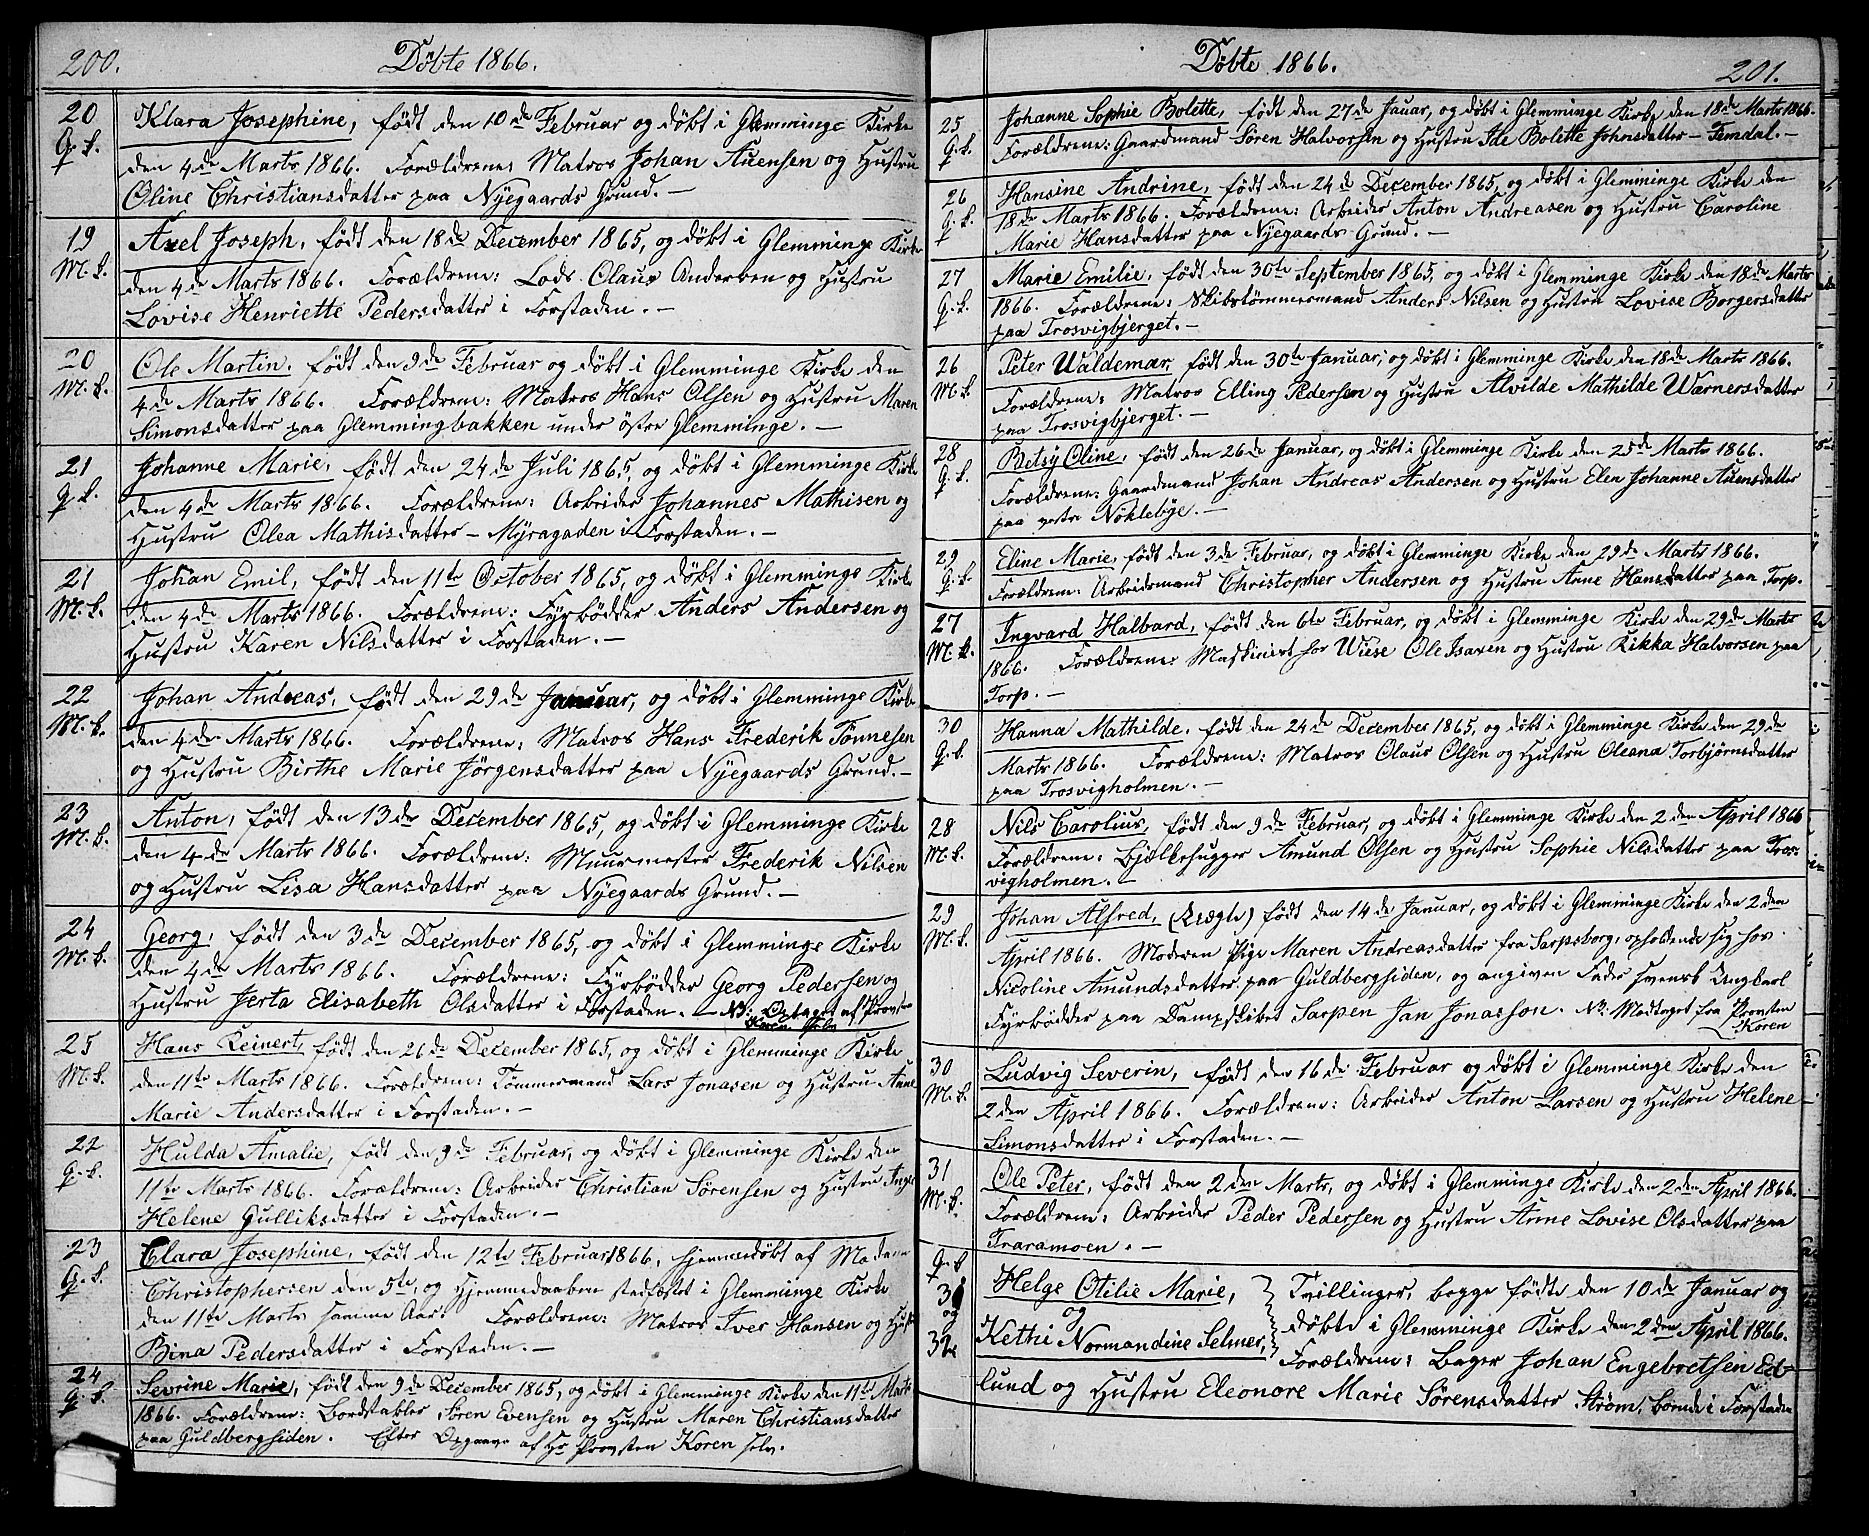 200.
Døbte 1866.
20
Q. k.
Klara Josephine, født den 10de Februar og døbt i Glemminge Kirke
den 4de Marts 1866. Forældrene: Matros Johan Auensen og Hustru
Oline Christiansdatter paa Nyegaards Grund. —
19
M. k.
Axel Joseph, født den 18de December 1865, og døbt i Glemminge Kirke
den 4de Marts 1866. Forældrene: Lods Claus Andersen og Hustru
Lovise Henriette Pedersdatter i Forstaden. —
20
M. k.
Ole Martin, født den 9de Februar og døbt i Glemminge Kirke den
4de Marts 1866. Forældrene: Matros Hans Olsen og Hustru Maren
Simonsdatter paa Glemmingbakken under østre Glemminge. —
21
Q. k.
Johanne Marie, født den 24de Juli 1865, og døbt i Glemminge Kirke
den 4de Marts 1866. Forældrene: Arbeider Johannes Mathisen og
Hustru Olea Mathisdatter — Myragaden i Forstaden. —
21
M. k.
Johan Emil, født den 11te October 1865, og døbt i Glemminge Kirke
den 4de Marts 1866. Forældrene: Fyrbødder Anders Andersen og
Hustru Karen Nilsdatter i Forstaden. —
22
M. k.
Johan Andreas, født den 29de Januar, og døbt i Glemminge Kirke
den 4de Marts 1866. Forældrene: Matros Hans Frederik Tønnesen
og Hustru Birthe Marie Jörgensdatter paa Nyegaards Grund. —
23
M. k.
Anton, født den 13de December 1865, og døbt i Glemminge Kirke
den 4de Marts 1866. Forældrene: Muurmester Frederik Nilsen
og Hustru Lisa Hansdatter paa Nyegaards Grund. —
24
M. k.
Georg, født den 3de December 1865, og døbt i Glemminge Kirke
den 4de Marts 1866. Forældrene: Fyrbødder Georg Pedersen og
Hustru Jerta Elisabeth Olsdatter i Forstaden. — NB: Optaget af Provsten
Koren selv
25
M. k.
Hans Reinert, født den 26de December 1865, og døbt i Glemminge Kirke
den 11te Marts 1866. Forældrene: Tømmermand Lars Jonasen og Hustru Anne
Marie Andersdatter i Forstaden. —
22
Q. k.
Hulda Amalie, født den 9de Februar, og døbt i Glemminge Kirke den
11te Marts 1866. Forældrene: Arbeider Christian Sørensen og Hustru Inge
Helene Gulliksdatter i Forstaden. —
23
Q. k.
Clara Josephine, født den 12te Februar 1866, hjemmedøbt af Madame
Christophersen den 5te, og Hjemmedaaben stadfæstet i Glemminge Kirke
den 11te Marts samme Aar. Forældrene: Matros Iver Hansen og Hust
Bina Pedersdatter i Forstaden. —
24
Q. k.
Sevrine Marie, født den 9de December 1865, og døbt i Glemminge Kirke den 11te Marts
1866. Forældrene: Bordstabler Søren Evensen og Hustru Maren Christiansdatter
paa Guldbergsiden. Efter Opgave af Hr Provsten Koren selv.
Døbte 1866.
201.
25
Q. k.
Johanne Sophie Bolette, født den 27de Januar, og døbt i Glemminge Kirke den 18de Marts 1866.
Forældrene: Gaardmand Søren Halvorsen og Hustru Ide Bolette Johnsdatter — Temdal. —
26
Q. k.
Hansine Andrine, født den 24de December 1865, og døbt i Glemminge Kirke den
18de Marts 1866. Forældrene: Arbeider Anton Andreasen og Hustru Caroline
Marie Hansdatter paa Nyegaards Grund. —
27
Q. k.
Marie Emilie, født den 30te September 1865, og døbt i Glemminge Kirke den 18de Marts
1866. Forældrene: Skibstømmermand Anders Nilsen og Hustru Lovise Borgersdatter
paa Trosvigbjerget. —
26
M. k
Peter Waldemar, født den 30te Januar, og døbt i Glemminge Kirke den 18de Marts 1866.
Forældrene: Matros Elling Pedersen og Hustru Alvilde Mathilde Warnersdatter
paa Trosvigbjerget. —
28
Q. k.
Betsy Oline, født den 26de Januar, og døbt i Glemminge Kirke den 25de Marts 1866.
Forældrene: Gaardmand Johan Andreas Andersen og Hustru Elen Johanne Auensdatter
paa vestre Nöklebye. —
29
Q. k.
Eline Marie, født den 3de Februar, og døbt i Glemminge Kirke den 29de Marts 1866.
Forældrene: Arbeidsmand Christopher Andersen og Hustru Anne Hansdatter paa Torp.
27
M. k.
Ingvard Halbard, født den 6te Februar, og døbt i Glemminge Kirke den 29de Marts
1866. Forældrene: Maskinist hos Wiese Ole Isaxen og Hustru Rikka Halvorsen paa
Torp. —
30
Q. k.
Hanna Mathilde, født den 24de December 1865, og døbt i Glemminge Kirke den 29de
Marts 1866. Forældrene: Matros Claus Olsen og Hustru Oleana Torbjørnsdatter
paa Trosvigholmen. —
28
M. k.
Nils Carolius, født den 9de Februar, og døbt i Glemminge Kirke den 2den April 1866
Forældrene: Bjelkehugger Amund Olsen og Hustru Sophie Nilsdatter paa Tros-
vigholmen. —
29
M. k.
Johan Alfred, (Uægte) født den 14de Januar, og døbt i Glemminge Kirke den 2den
April 1866. Moderen Pige Maren Andreasdatter fra Sarpsborg, opholdende sig hos
Nicoline Amundsdatter paa Guldbergsiden, og angiven Fader svensk Ungkarl
Fyrbødder paa Dampskibet Sarpen Jan Jonasson. NB: Modtaget fra Provsten
Koren
30
M. k.
Ludvig Severin, født den 16de Februar og døbt i Glemminge Kirke den
2den April 1866. Forældrene: Arbeider Anton Larsen og Hustru Helene
Simonsdatter i Forstaden. —
31
M. k.
Ole Peter, født den 2den Marts, og døbt i Glemminge Kirke den 2den April 1866.
Forældrene: Arbeider Peder Pedersen og Hustru Anne Lovise Olsdatter paa
Traramoen. —
Q. k
31
og
32
Helge Otilie Marie,
og
Kethi Normandine Selmer,
Tvillinger, begge fødte den 10de Januar og
døbte i Glemminge Kirke den 2den April 1866.
Forældrene: Bager Johan Engebretsen Ed-
lund og Hustru Eleonore Marie Sørensdatter Strøm, boende i Forstaden